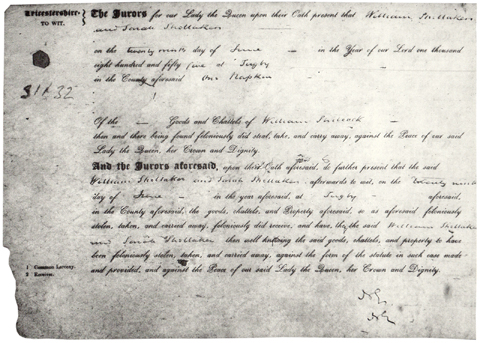 Leicestershire The Jurors for our Lady the Queen upon their Oath present that William Shillaker
TO WIT. and Sarah Shellaker
on the twenty ninth day of June – in the Year of our Lord one thousand
eight hundred and fifty five at
in the County aforesaid One Napkin
Of the – Goods and Chattels of William –
then and there being found feloniously did steal, take, and carry away; against the Peace of our said
Lady the Queen, her Crown and Dignity.
And the Jurors aforesaid, upon their Oath aforesaid, do further present that the said
William Shillaker and Sarah Shellaker afterwards to wit, on the twenty ninth
day of June – in the year aforesaid, at aforesaid,
in the County aforesaid, the goods, chattels, and Property aforesaid, so as aforesaid feloniously
stolen, taken, and carried away, feloniously did receive, and have, the said William Shellaker
and Sarah Shellaker then well knowing the said goods, chattels, and property to have
been feloniously stolen, taken, and carried away, against the form of the statute in such case made
and provided, and against the Peace of our said Lady the Queen, her Crown and Dignity.
1 Common Larceny.
2 Receiver.